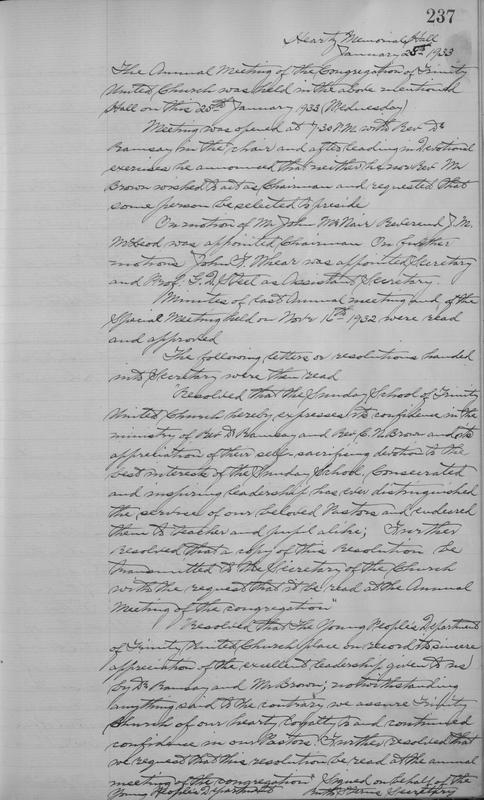 237
Heartz Memorial Hall
January 25th 1933
The Annual Meeting of the Congregation of Trinity
United Church was held in the above mentioned
Hall on this 25th January 1933 (Wednesday)
Meeting was opened at 7:30 P.M. with Rev. Dr
Ramsay in the chair and after leading in Devotional
exercises he announced that neither he nor Rev. Mr
Brown wished to act as Chairman and requested that
some person be selected to preside
On motion of Mr John McNair Reverend J. M.
McLeod was appointed Chairman On further
motions John F. Whear was appointed Secretary
and Prof. G. D. Steel as Assistant Secretary.
Minutes of last Annual meeting and of the
Special Meeting held on Novr 16th 1932 were read
and approved
The following letters or resolutions handed
into Secretary were then read
"Resolved that the Sunday School of Trinity
United Church hereby expresses its confidence in the
ministry of Rev Dr Ramsay and Rev. C. N. Brown and its
appreciation of their self sacrificing devotion to the
best interests of the Sunday School. Consecrated
and inspiring leadership has ever distinguished
the services of our beloved Pastors and endeared
them to teacher and pupil alike; Further
resolved that a copy of this Resolution be
transmitted to the Secretary of the Church
with the request that it be read at the Annual
Meeting of the congregation"
"Resolved that The Young People's Department
of Trinity United Church place on record its sincere
appreciation of the excellent leadership given to us
by Dr Ramsay and Mr Brown; notwithstanding
anything said to the contrary we assure Trinity
Church of our hearty loyalty to and continued
confidence in our Pastors. Further resolved that
we request that this resolution be read at the annual
meeting of the congregation" Signed on behalf of the
Young People's Department Secretary